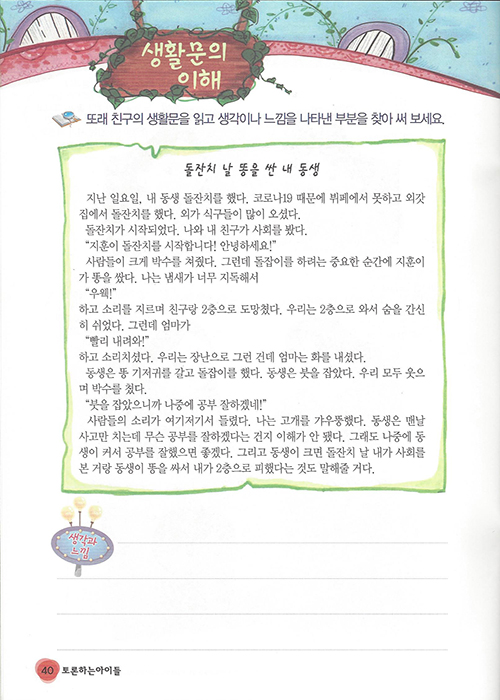 생활문의
이해
또래 친구의 생활문을 읽고 생각이나 느낌을 나타낸 부분을 찾아 써 보세요.
돌잔치 날 똥을 싼 내 동생
지난 일요일, 내 동생 돌잔치를 했다. 코로나19 때문에 뷔페에서 못하고 외갓
집에서 돌잔치를 했다. 외가 식구들이 많이 오셨다.
돌잔치가 시작되었다. 나와 내 친구가 사회를 봤다.
“지훈이 돌잔치를 시작합니다! 안녕하세요!”
사람들이 크게 박수를 쳐줬다. 그런데 돌잡이를 하려는 중요한 순간에 지훈이
가 똥을 쌌다. 나는 냄새가 너무 지독해서
“우웩!”
하고 소리를 지르며 친구랑 2층으로 도망쳤다. 우리는 2층으로 와서 숨을 간신
히 쉬었다. 그런데 엄마가
“빨리 내려와!”
하고 소리치셨다. 우리는 장난으로 그런 건데 엄마는 화를 내셨다.
동생은 똥 기저귀를 갈고 돌잡이를 했다. 동생은 붓을 잡았다. 우리 모두 웃으
며 박수를 쳤다.
“붓을 잡았으니까 나중에 공부 잘하겠네!”
사람들의 소리가 여기저기서 들렸다. 나는 고개를 갸우뚱했다. 동생은 맨날
사고만 치는데 무슨 공부를 잘하겠다는 건지 이해가 안 됐다. 그래도 나중에 동
생이 커서 공부를 잘했으면 좋겠다. 그리고 동생이 크면 돌잔치 날 내가 사회를
본 거랑 동생이 똥을 싸서 내가 2층으로 피했다는 것도 말해줄 거다.
생각과
느낌
40 토론하는아이들